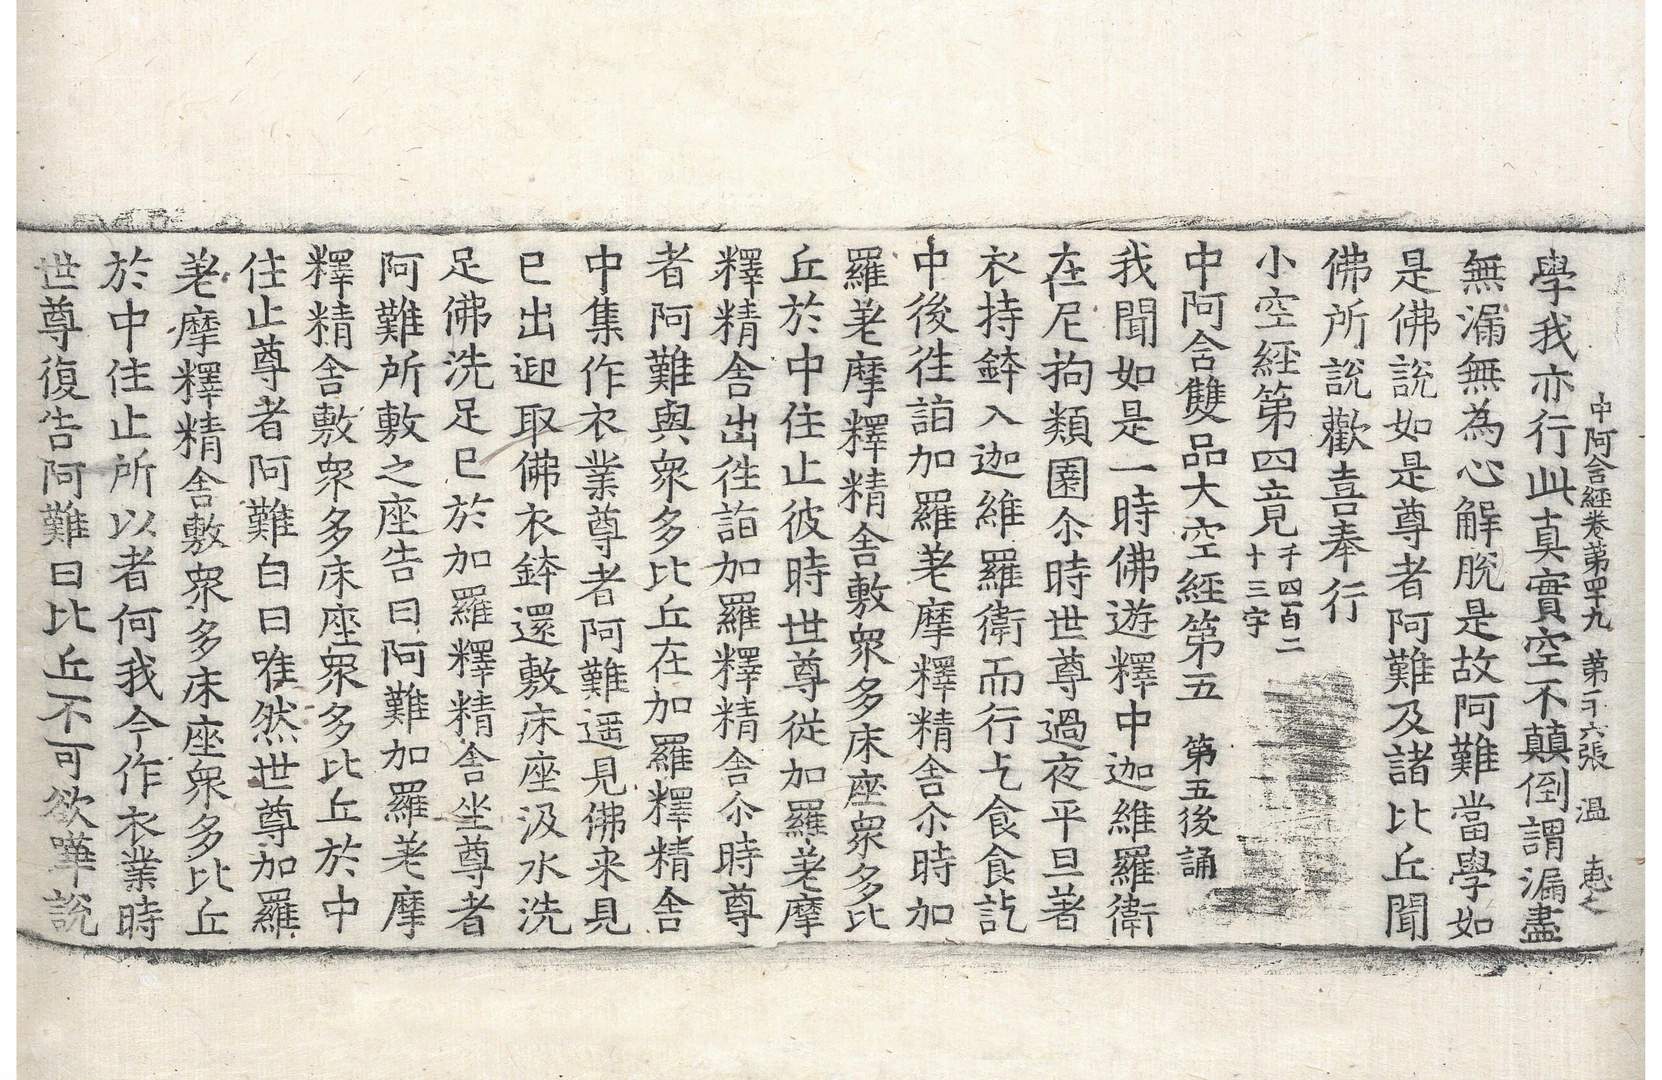 中阿含經卷第四十九 第二十六張 溫 惠
學我亦行此真實空不顛倒謂漏盡
無漏無為心解脫是故阿難當學如
是佛說如是尊者阿難及諸比丘聞
佛所說歡喜奉行
小空經第四竟 千四百二十三字
中阿含雙品大空經第五 第五後誦
我聞如是一時佛遊釋中迦維羅衛
在尼拘類園尒時世尊過夜平旦著
衣持鉢入迦維羅衛而行乞食食訖
中後徃詣加羅差摩釋精舍尒時加
羅差摩釋精舍敷衆多床座衆多比
丘於中住止彼時世尊從加羅差摩
釋精舍出徃詣加羅釋精舍尒時尊
者阿難與衆多比丘在加羅釋精舍
中集作衣業尊者阿難遥見佛来見
已出迎取佛衣鉢還敷床座汲水洗
足佛洗足已於加羅釋精舍坐尊者
阿難所敷之座告曰阿難加羅差摩
釋精舍敷衆多床座衆多比丘於中
住止尊者阿難白曰唯然世尊加羅
差摩釋精舍敷衆多床座衆多比丘
於中住止所以者何我今作衣業時
世尊復告阿難曰比丘不可欲嘩說